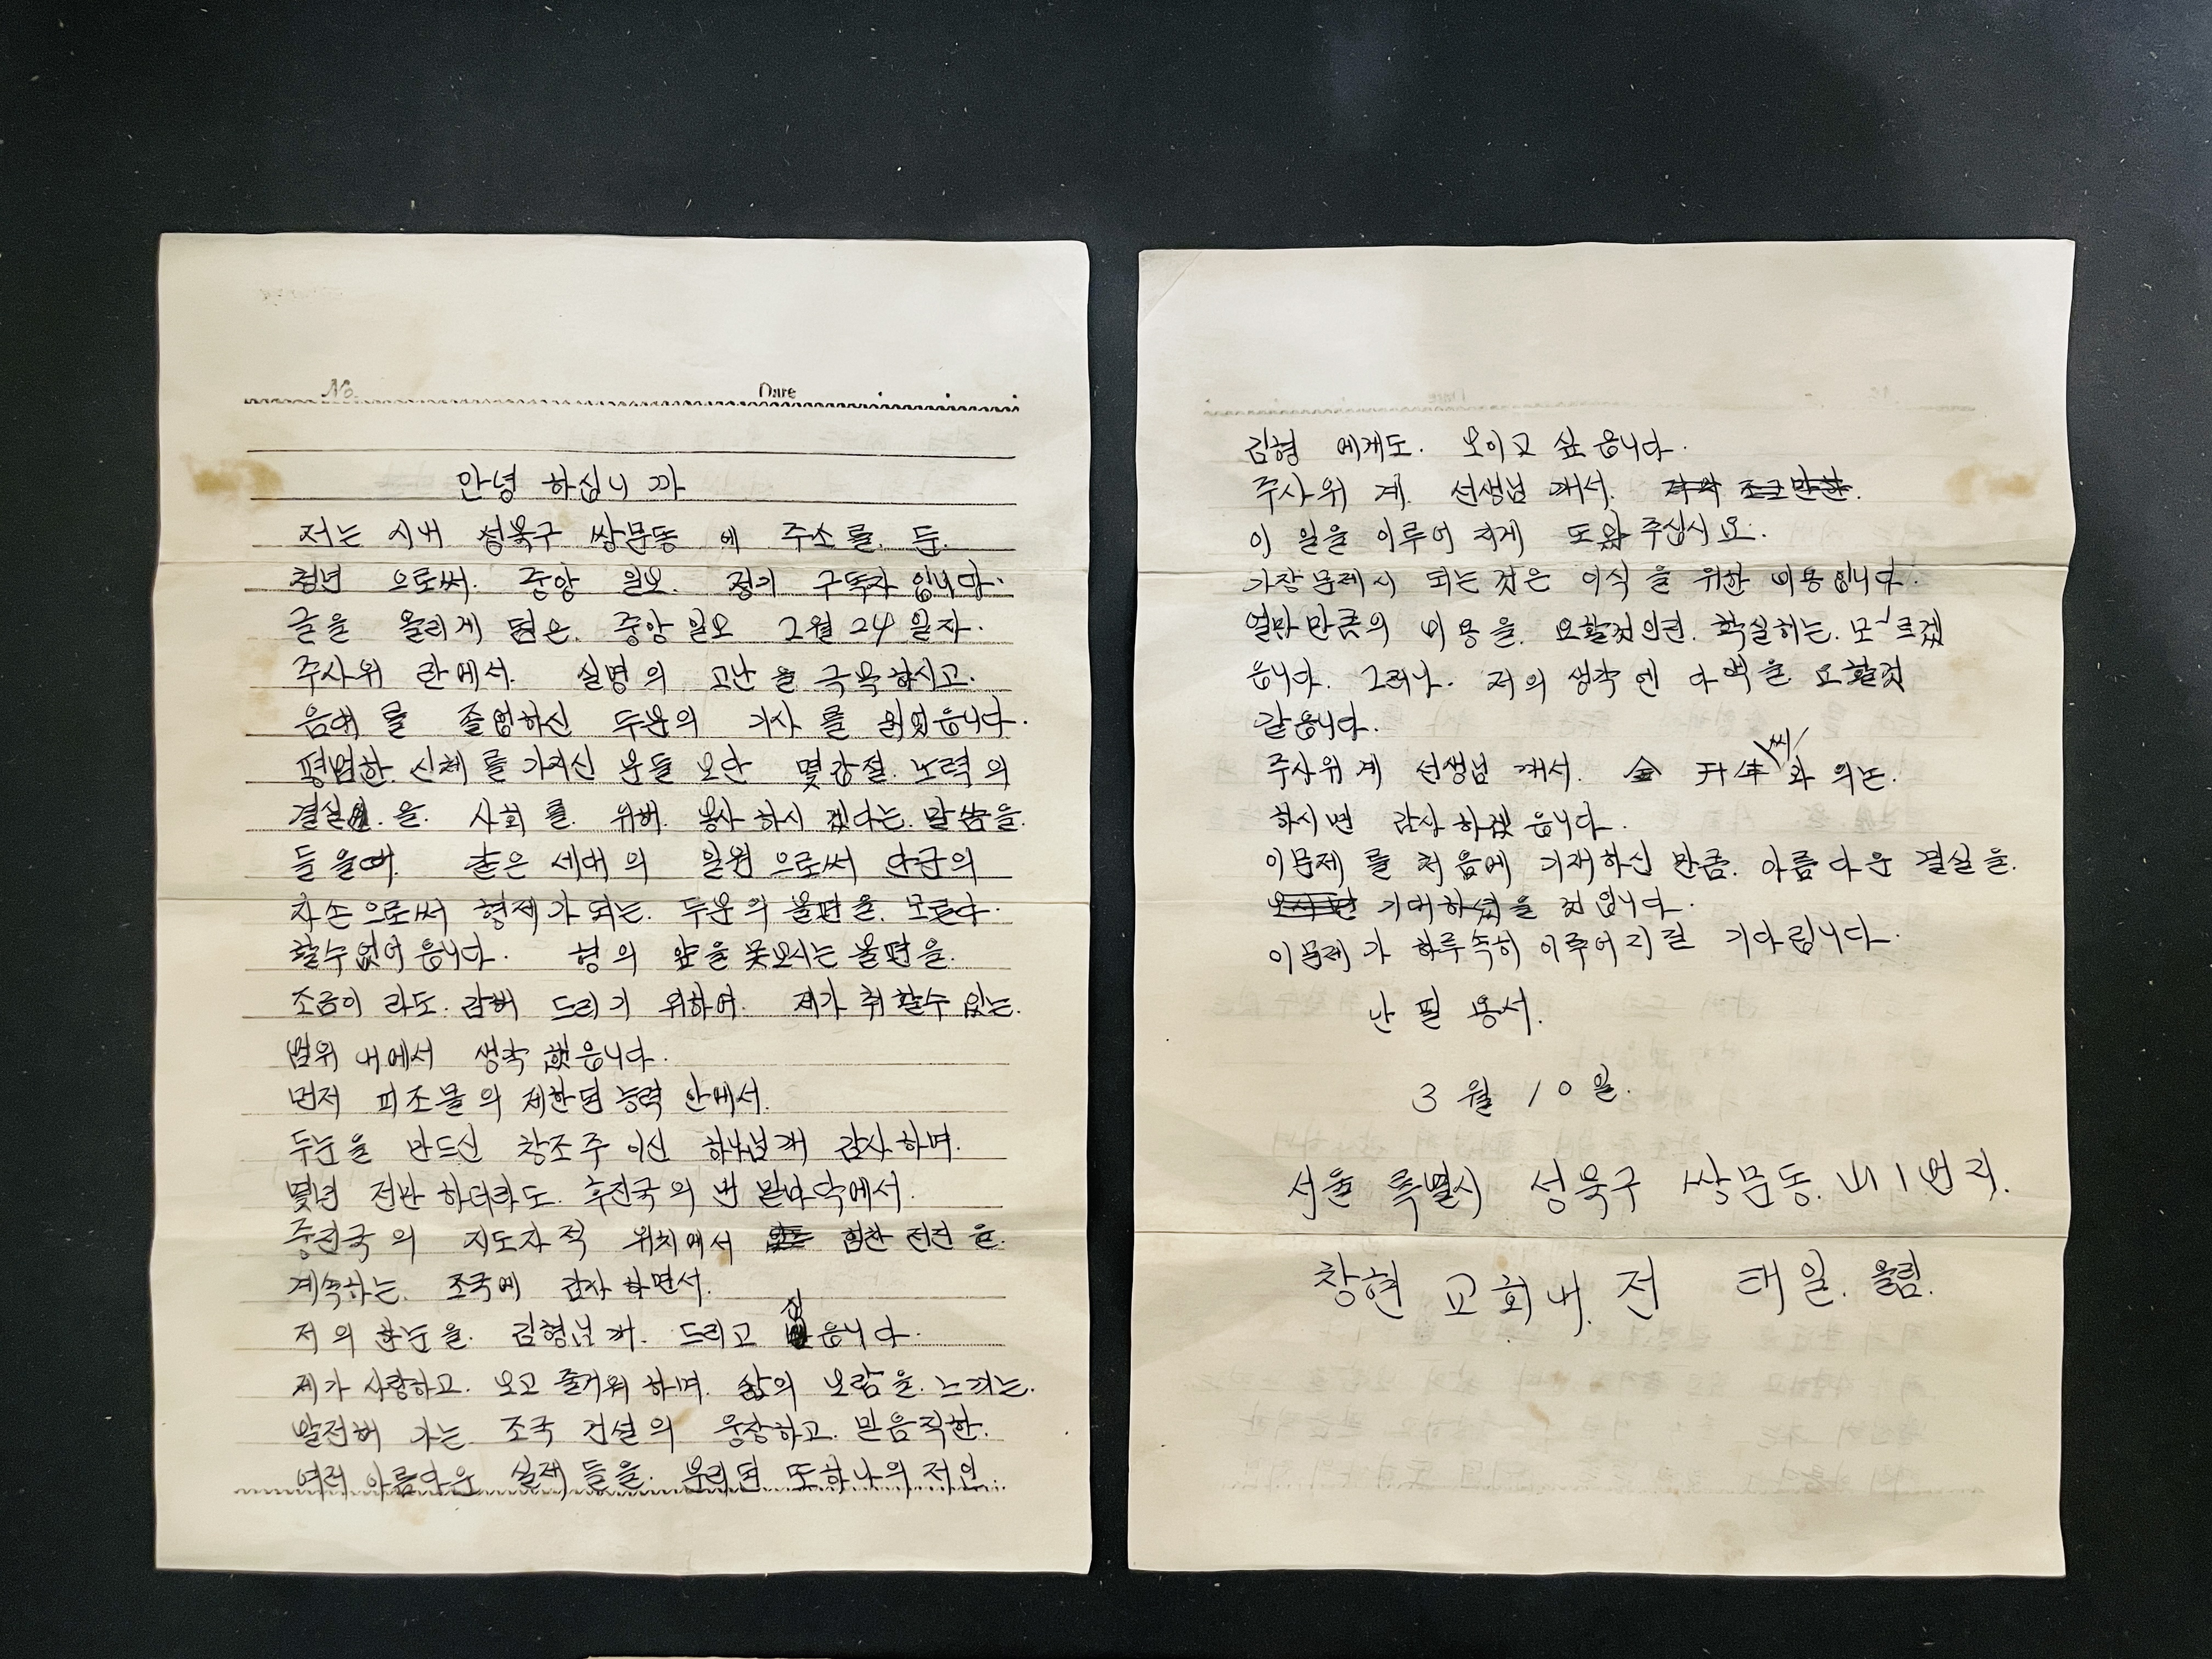 No. Date
안녕 하십니 까
저는 시내 성북구 쌍문동 에 주소를. 둔.
청년 으로써. 중앙 일보. 정기 구독자 입니다.
글을 올리게 됨은. 중앙일보 2월 24 일자.
주사위 란에서. 실명의 고난을 극복하시고.
음대 를 졸업하신 두분의 기사 를 읽었읍니다.
평범한. 신체 를 가지신 분들 보단 몇갑절. 노력의
결실 을. 사회 를. 위해. 봉사 하시 겠다는. 말씀을.
들을때. 같은 세대의 일원 으로써 단군의
자손으로써 형제가 되는. 두분의 불편을. 모른다.
할수없어 읍니다. 형의 앞을 못보시는 불편을.
조금이 라도. 감해 드리기 위하여. 제가 취 할수 있는.
범위 내에서 생각 했읍니다.
먼저 피조물의 제한된 능력 안에서.
두눈을 만드신 창조주 이신 하나님께 감사하며.
몇년 전만 하더라도. 후진국의 맨 밑바닥에서.
중진국의 지도자적 위치에서 힘찬 전진 을.
계속하는. 조국에 감사 하면서.
저의 한눈을. 김형님께. 드리고 싶읍니다.
제가 사랑하고. 보고 즐거워 하며. 삶의 보람을. 느끼는.
발전해 가는 조국 건설의 웅장하고. 믿음직한.
여러 아름다운 실제 들을. 우리된 또하나의 저인.
김형 에게도. 보이고 싶읍니다.
주사위 계. 선생님 께서.
이 일을 이루어 지게 도와 주십시요.
가장문제시 되는것은 이식 을 위한 비용입니다.
얼마만큼의 비용을. 요할것인진. 확실히는. 모르겠
읍니다. 그러나. 저의 생각엔 다액을 요할것
같읍니다.
주사위계 선생님 께서. 金 开年씨와 의논.
하시면 감사 하겠읍니다.
이문제 를 처음에 기재하신 만큼. 아름다운 결실을.
기대하셨을 것 입니다.
이문제 가 하루속히 이루어지길 기다립니다.
난 필 용서.
3 월 10 일.
서울 특별시 성북구 쌍문동. 山1번지.
창현 교회내. 전 태일. 올림.